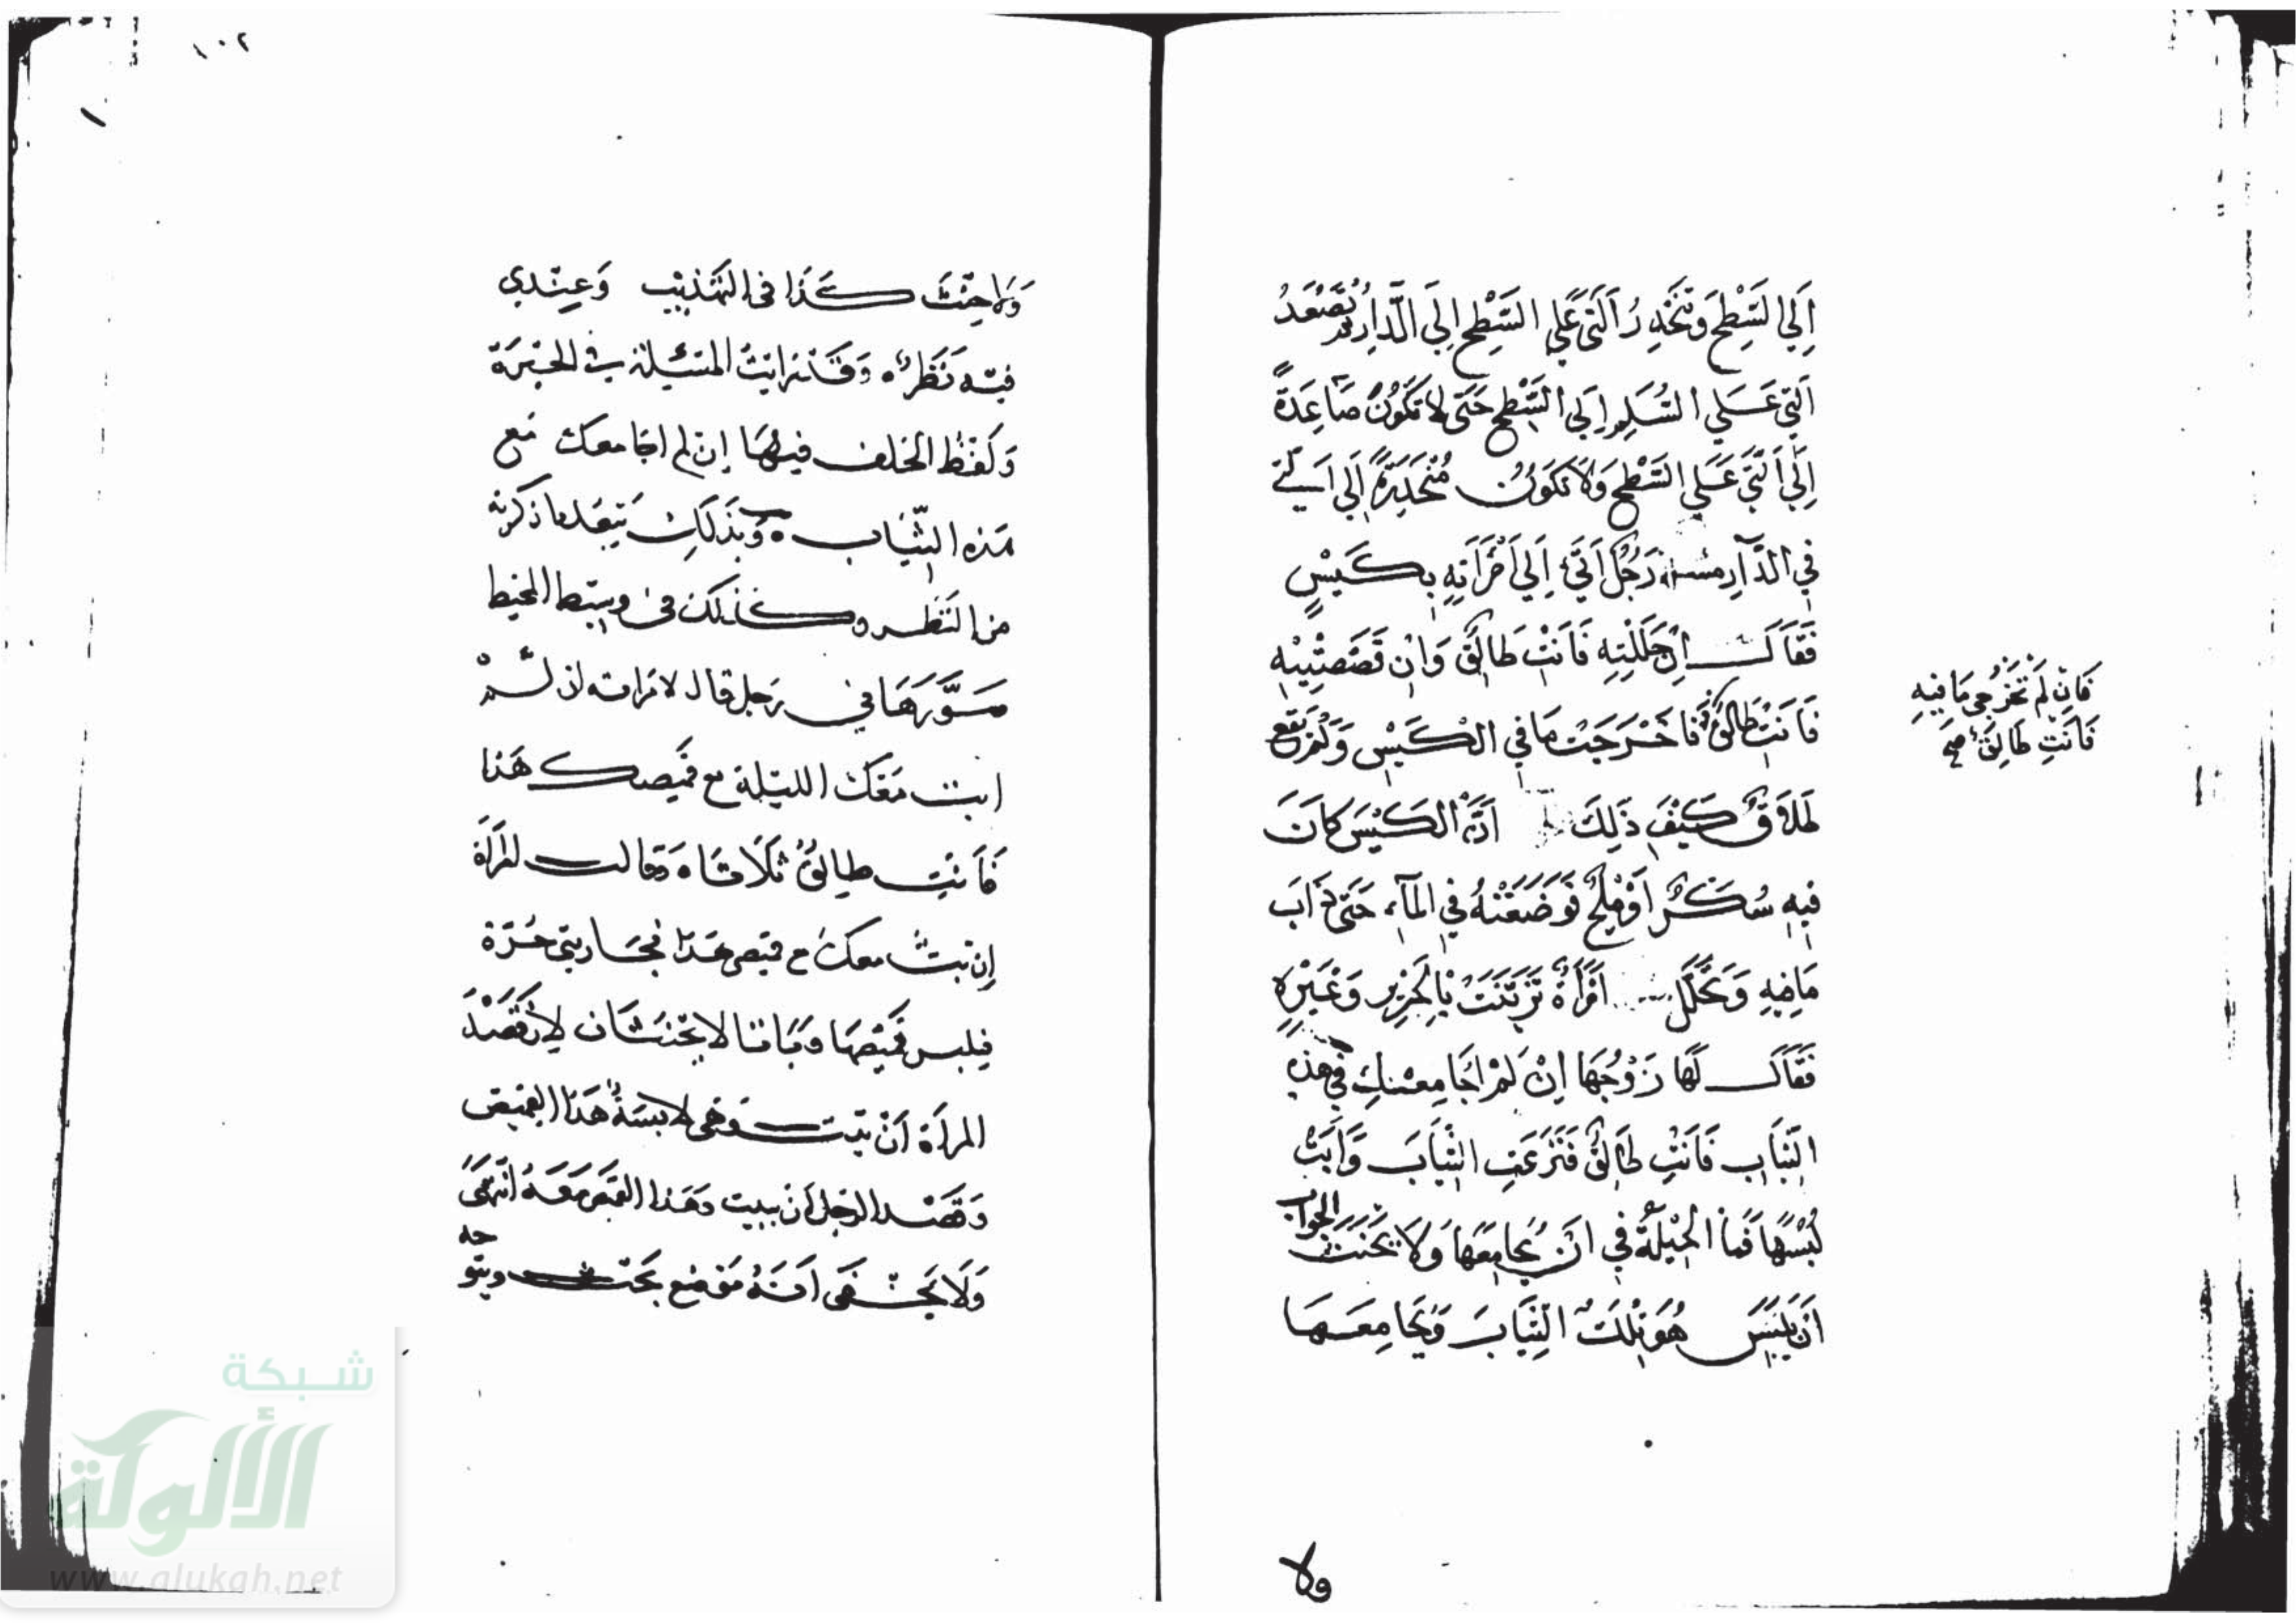 إِلَي السَّطْحِ وَتَنْحَدِرُ الَّتِي عَلَي السَّطْحِ إِلَي الدَّارِ ثم تَصْعَدُ
الَّتِي عَلَي السُّلَّمِ إِلَي السَّطْحِ حَتَّى لَا تَكُونُ صَاعِدَةً
إِلَي الَّتِي عَلَي السَّطْحِ وَلَا تَكُونُ مُنْحَدِرَةً إِلَي الَّتِي
فِي الدَّارِ مسئلة رَجُلٌ أَتَي إِلَي امْرَأَتِهِ بِكَيْسٍ
فَقَالَ إِنْ حَلَلْتِهِ فَأَنْتِ طَالِقٌ وَإِنْ قَصَصْتِيهِ
فَأَنْتِ طَالِقٌ فَأَخْرَجَتْ مَا فِي الْكَيْسِ وَلَمْ يَقَع
فَإِنْ لَمْ تَخْرُجِي مَا فِيهِ
فَأَنْتِ طَالِقٌ صح
طَلَاقٌ كَيْفَ ذَلِكَ أَنَّ الكَيْسَ كَانَ
فِيهِ سُكَّرٌ أَوْ مِلْحٌ فَوَضَعَتْهُ فِي المَآءِ حَتَّى ذَابَ
مَا فِيهِ وَتَحَلَّلَ امْرَأَةٌ تَزَيَّنَتْ بِالحَرِيرِ وَغَيْرِهِ
فَقَالَ لَهَا زَوْجُهَا إِنْ لَمْ أُجَامِعْكِ فِي هَذِهِ
الثِّيَابِ فَأَنْتِ طَالِقٌ فَنَزَعَتِ الثِّيَابَ وَأَبَتْ
لُبْسَهَا فَمَا الحِيْلَةُ فِي أَنْ يُجَامِعَهَا وَلَا يَحْنَثُ الجواب
أَنْ يَلْبَسَ هُوَ تِلْكَ الثِّيَابَ وَيُجَامِعَهَا
ولا
١٠٢
وَلَا حِنْثَ كَذَا فِي التَّهْذِيْبِ وَعِنْدِي
فيه نَظَرٌ ه وَقَدْ رَأيْتُ المسْئِلة في الحَيْرَة
وَلَفْظُ الحَلف فِيْهَا إن لم أجامعك مَع
هَذِه الثِّيَاب ه وَبِذَلِكِ يَبْعُد ما ذكرته
من النَّظَر وكَذلك في وسيط المحيط
صَوَّرَهَا فِي رَجل قال لامرَاته ان لَّمْ
ابت مَعَك الليْلة مع قميصك هَذا
فَأَنْتِ طالِقٌ ثَلَاثا ه وَقالت المرأة
إن بتُّ معك مع قميصي هَذا فجَاريتي حُرَّة
فلبس قَمِيْصَهَا وَبَاتا لا يحنثَان لِأَنَّ قَصْدَ
المرأة أَنْ تبيت وَهي لابسَةُ هَذا القميص
وَقَصْد الرَّجل أن يبيت وَهَذا القميص مَعَهُ انتَهَى
وَلَا يَخْفَى أَنَّهُ مَوْضِع بَحْث ويتو
جه
شبكة
الألوكة
www.alukah.net